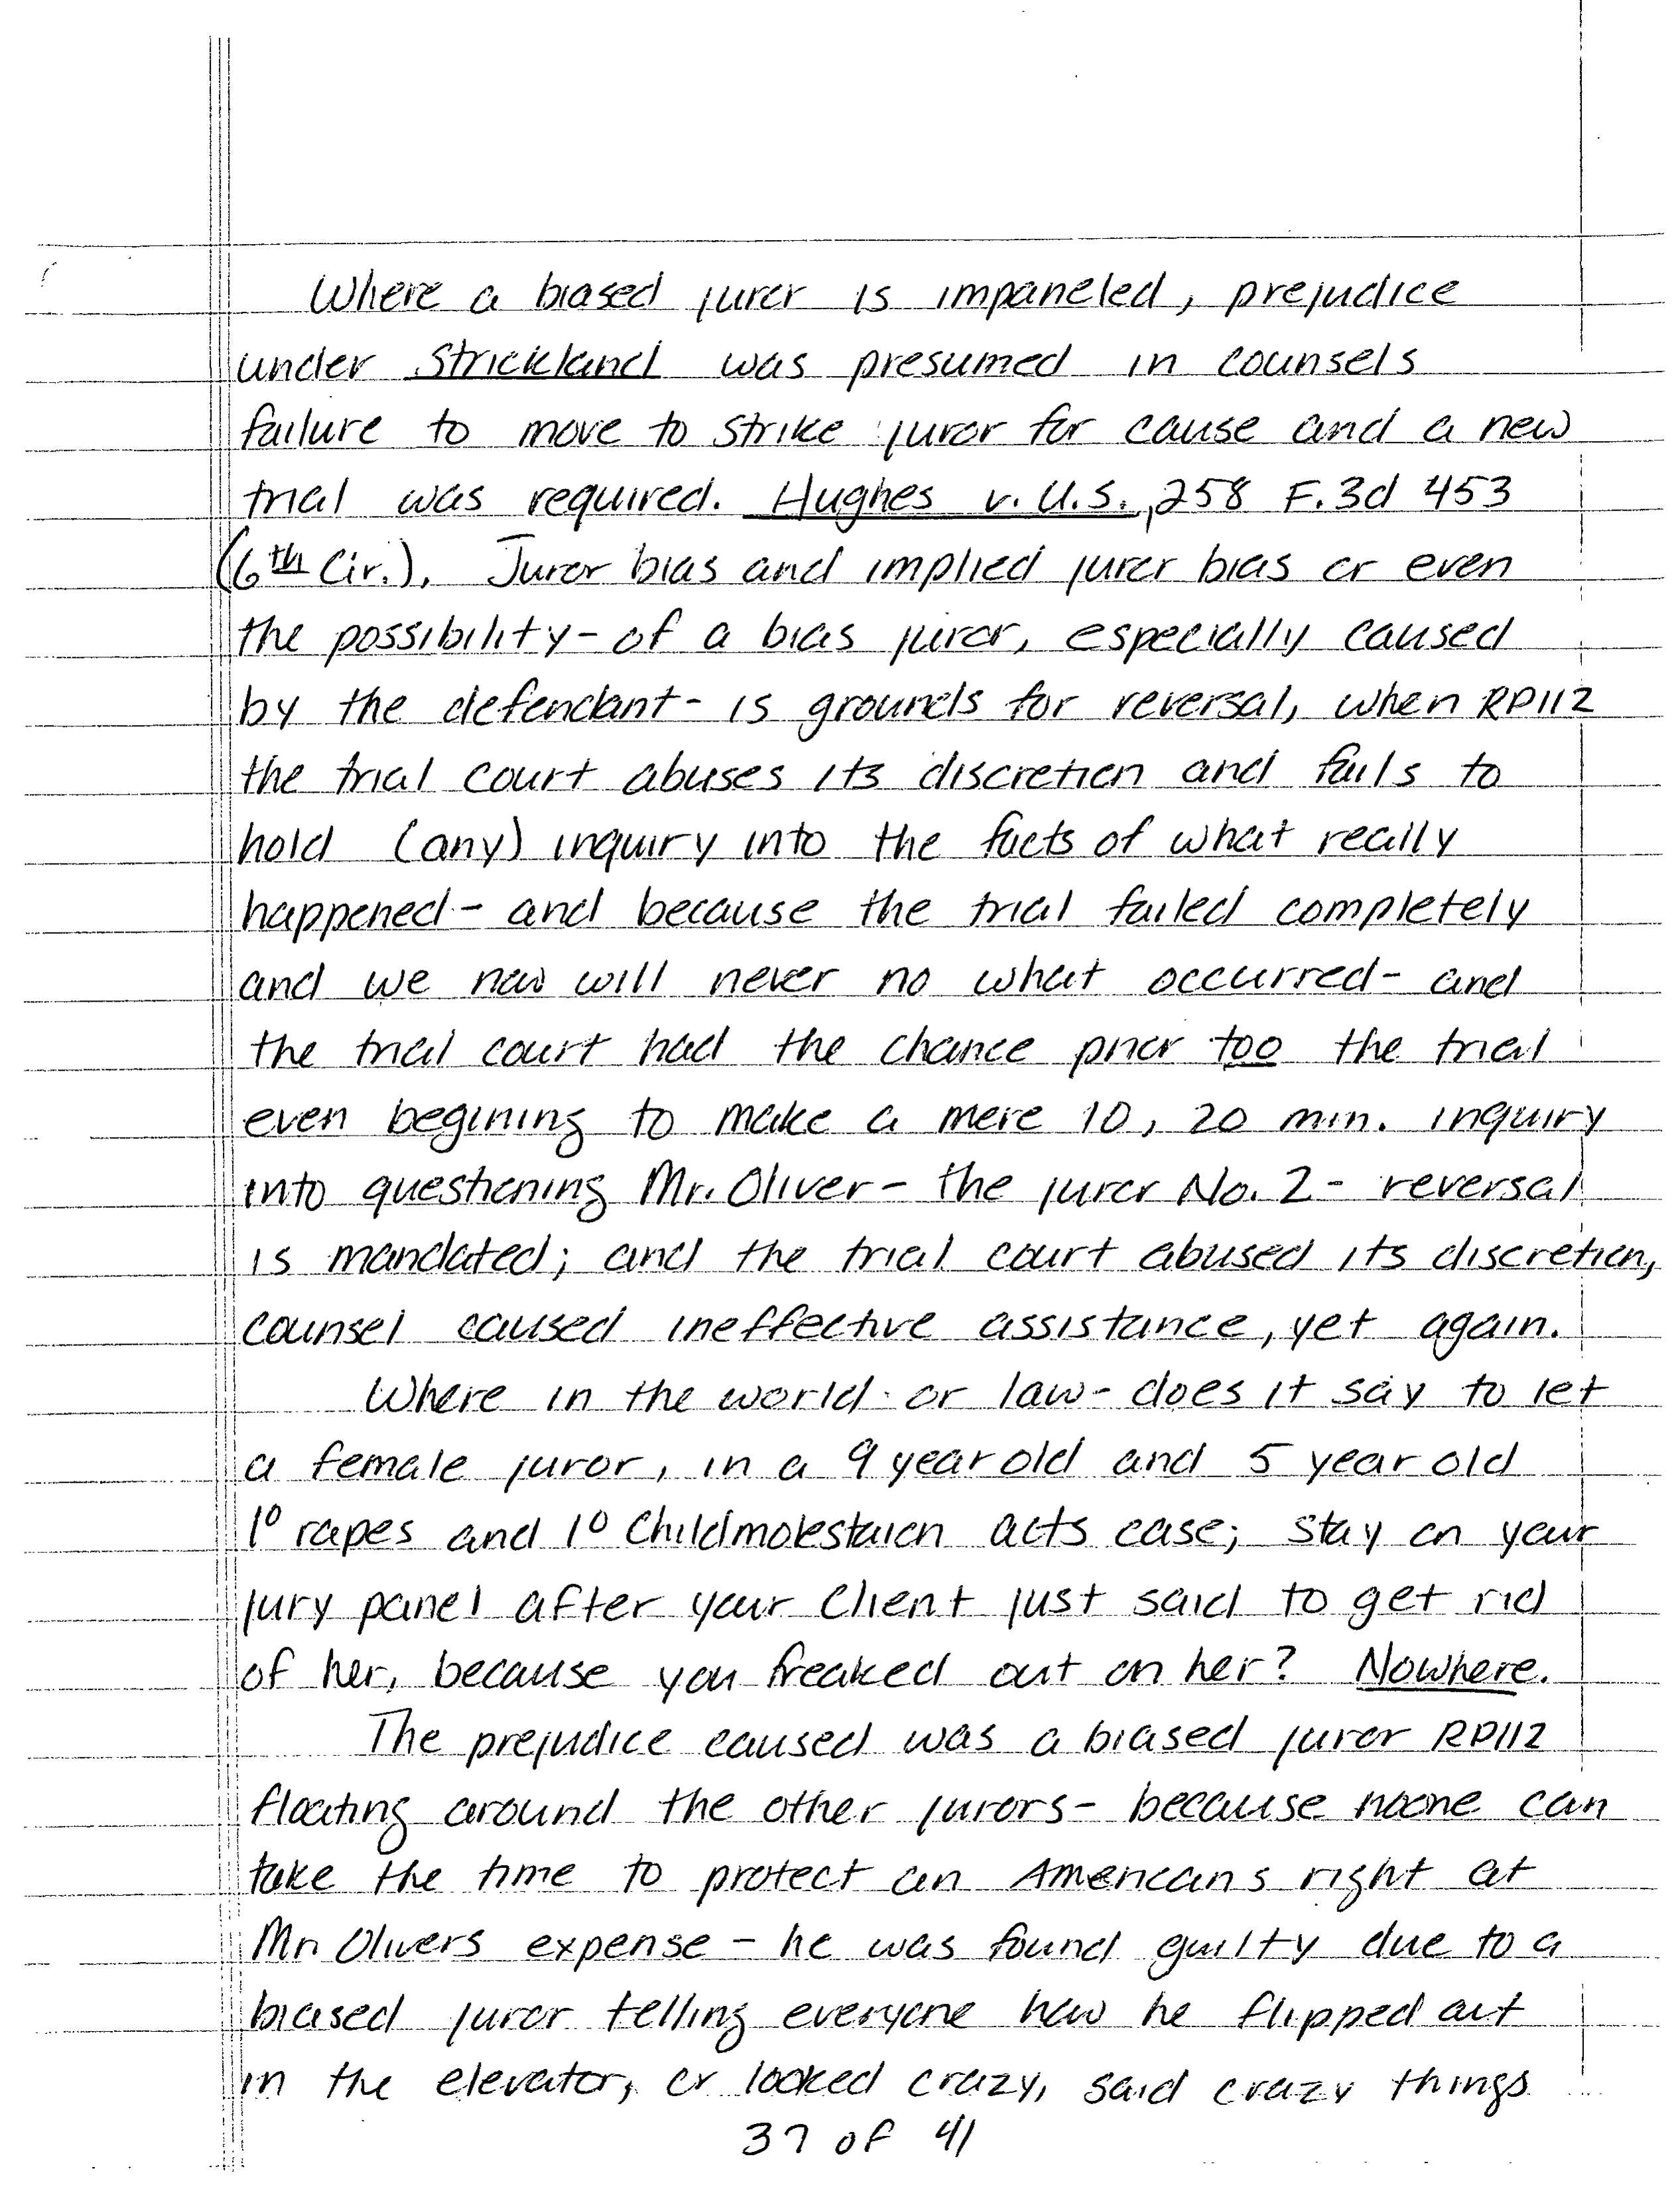 Where a biased juror is impaneled, prejudice
under Strickland was presumed in counsels
failure to move to strike juror for cause and a new
trial was required. Hughes v. U.S., 258 F.3d 453
(6th Cir.). Juror bias and implied juror bias or even
the possibility- of a bias juror, especially caused
by the defendant- is grounds for reversal, when RP112
the trial court abuses its discretion and fails to
hold (any) inquiry into the facts of what really
happened- and because the trial failed completely
and we now will never no what occurred- and
the trial court had the chance prior too the trial
even begining to make a mere 10, 20 min. inquiry
into questioning Mr. Oliver- the juror No. 2- reversal
is mandated; and the trial court abused its discretion,
counsel caused ineffective assistance, yet again.
Where in the world- or law- does it say to let
a female juror, in a 9 year old and 5 year old
1° rapes and 1° Childmolestaion acts case; stay on your
jury panel after your client just said to get rid
of her, because you freaked out on her? Nowhere.
The prejudice caused was a biased juror RP112
floating around the other jurors- because noone can
take the time to protect an Americans right at
Mr. Olivers expense - he was found guilty due to a
biased juror telling everyone how he flipped out
in the elevator, or looked crazy, said crazy things
37 of 41